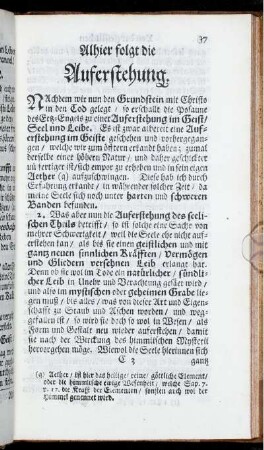 37
Alhier folgt die
Auferstehung.
NAchdem wir nun den Grundstein mit Christo
in den Tod gelegt / so erschallt die Posaune
des Ertz-Engels zu einer Auferstehung im Geist /
Seel und Leibe. Es ist zwar allbereit eine Auf-
erstehung im Geiste geschehen und vorhergegan-
gen / welche wir zum öftern erkandt haben; zumal
derselbe einer höhern Natur / und daher geschickter
und fertiger ist / sich empor zu erheben und in sein eigen
Aether (q) aufzuschwingen. Diese hab ich durch
Erfahrung erkandt / in währender solcher Zeit / da
meine Seele sich noch unter harten und schweren
Banden befunden.
2. Was aber nun die Auferstehung des seeli-
schen Theils betrifft / so ist solche eine Sache von
mehrer Schwierigkeit / weil die Seele ehe nicht auf-
erstehen kan / als bis sie einen geistlichen und mit
gantz neuen sinnlichen Kräfften / Vermögen
und Gliedern versehnen Leib erlanget hat.
Denn ob sie wol im Tode ein natürlicher / sündli-
cher Leib in Unehr und Verachtung gesäet wird /
und also im mystischen oder geheimen Grabe lie-
gen muß / bis alles / was von dieser Art und Eigen-
schafft zu Staub und Aschen worden / und weg-
gefallen ist / so wird sie doch so wol im Wesen / als
Form und Gestalt neu wieder auferstehen / damit
sie nach der Wirckung des himmlischen Mysterii
hervorgehen möge. Wiewol die Seele hierinnen sich
C 3 gantz
(q) Aether / ist hier das heilige / reine / göttliche Element /
oder die himmlische ewige Wesenheit / welche Sap. 7.
v. 17. die Krafft der Elementen / sonsten auch wol der
Himmel genennet wird.